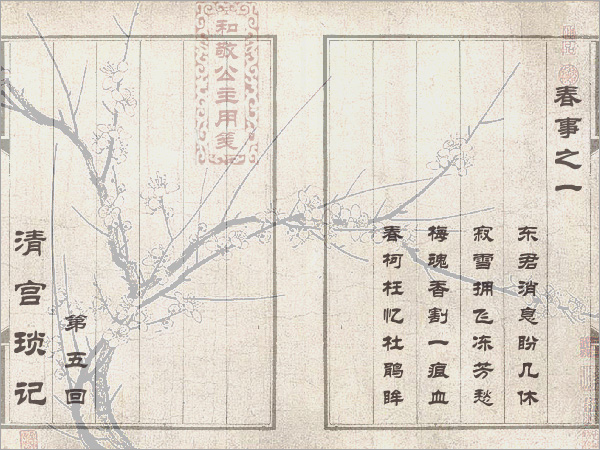 春事之一
东君消息盼几休
寂雪拥飞冻芳愁
梅魂香割一痕血
春柯枉忆杜鹃眸
和敬公主用笺
第五回
清宫琐记